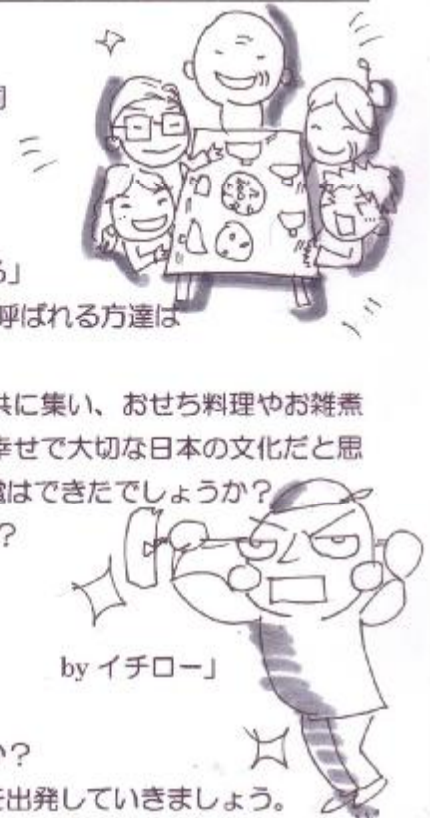 る」
呼ばれる方達は
共に集い、おせち料理やお雑煮
幸せで大切な日本の文化だと思
はできたでしょうか?
?
by イチロー」
い?
を出発していきましょう。